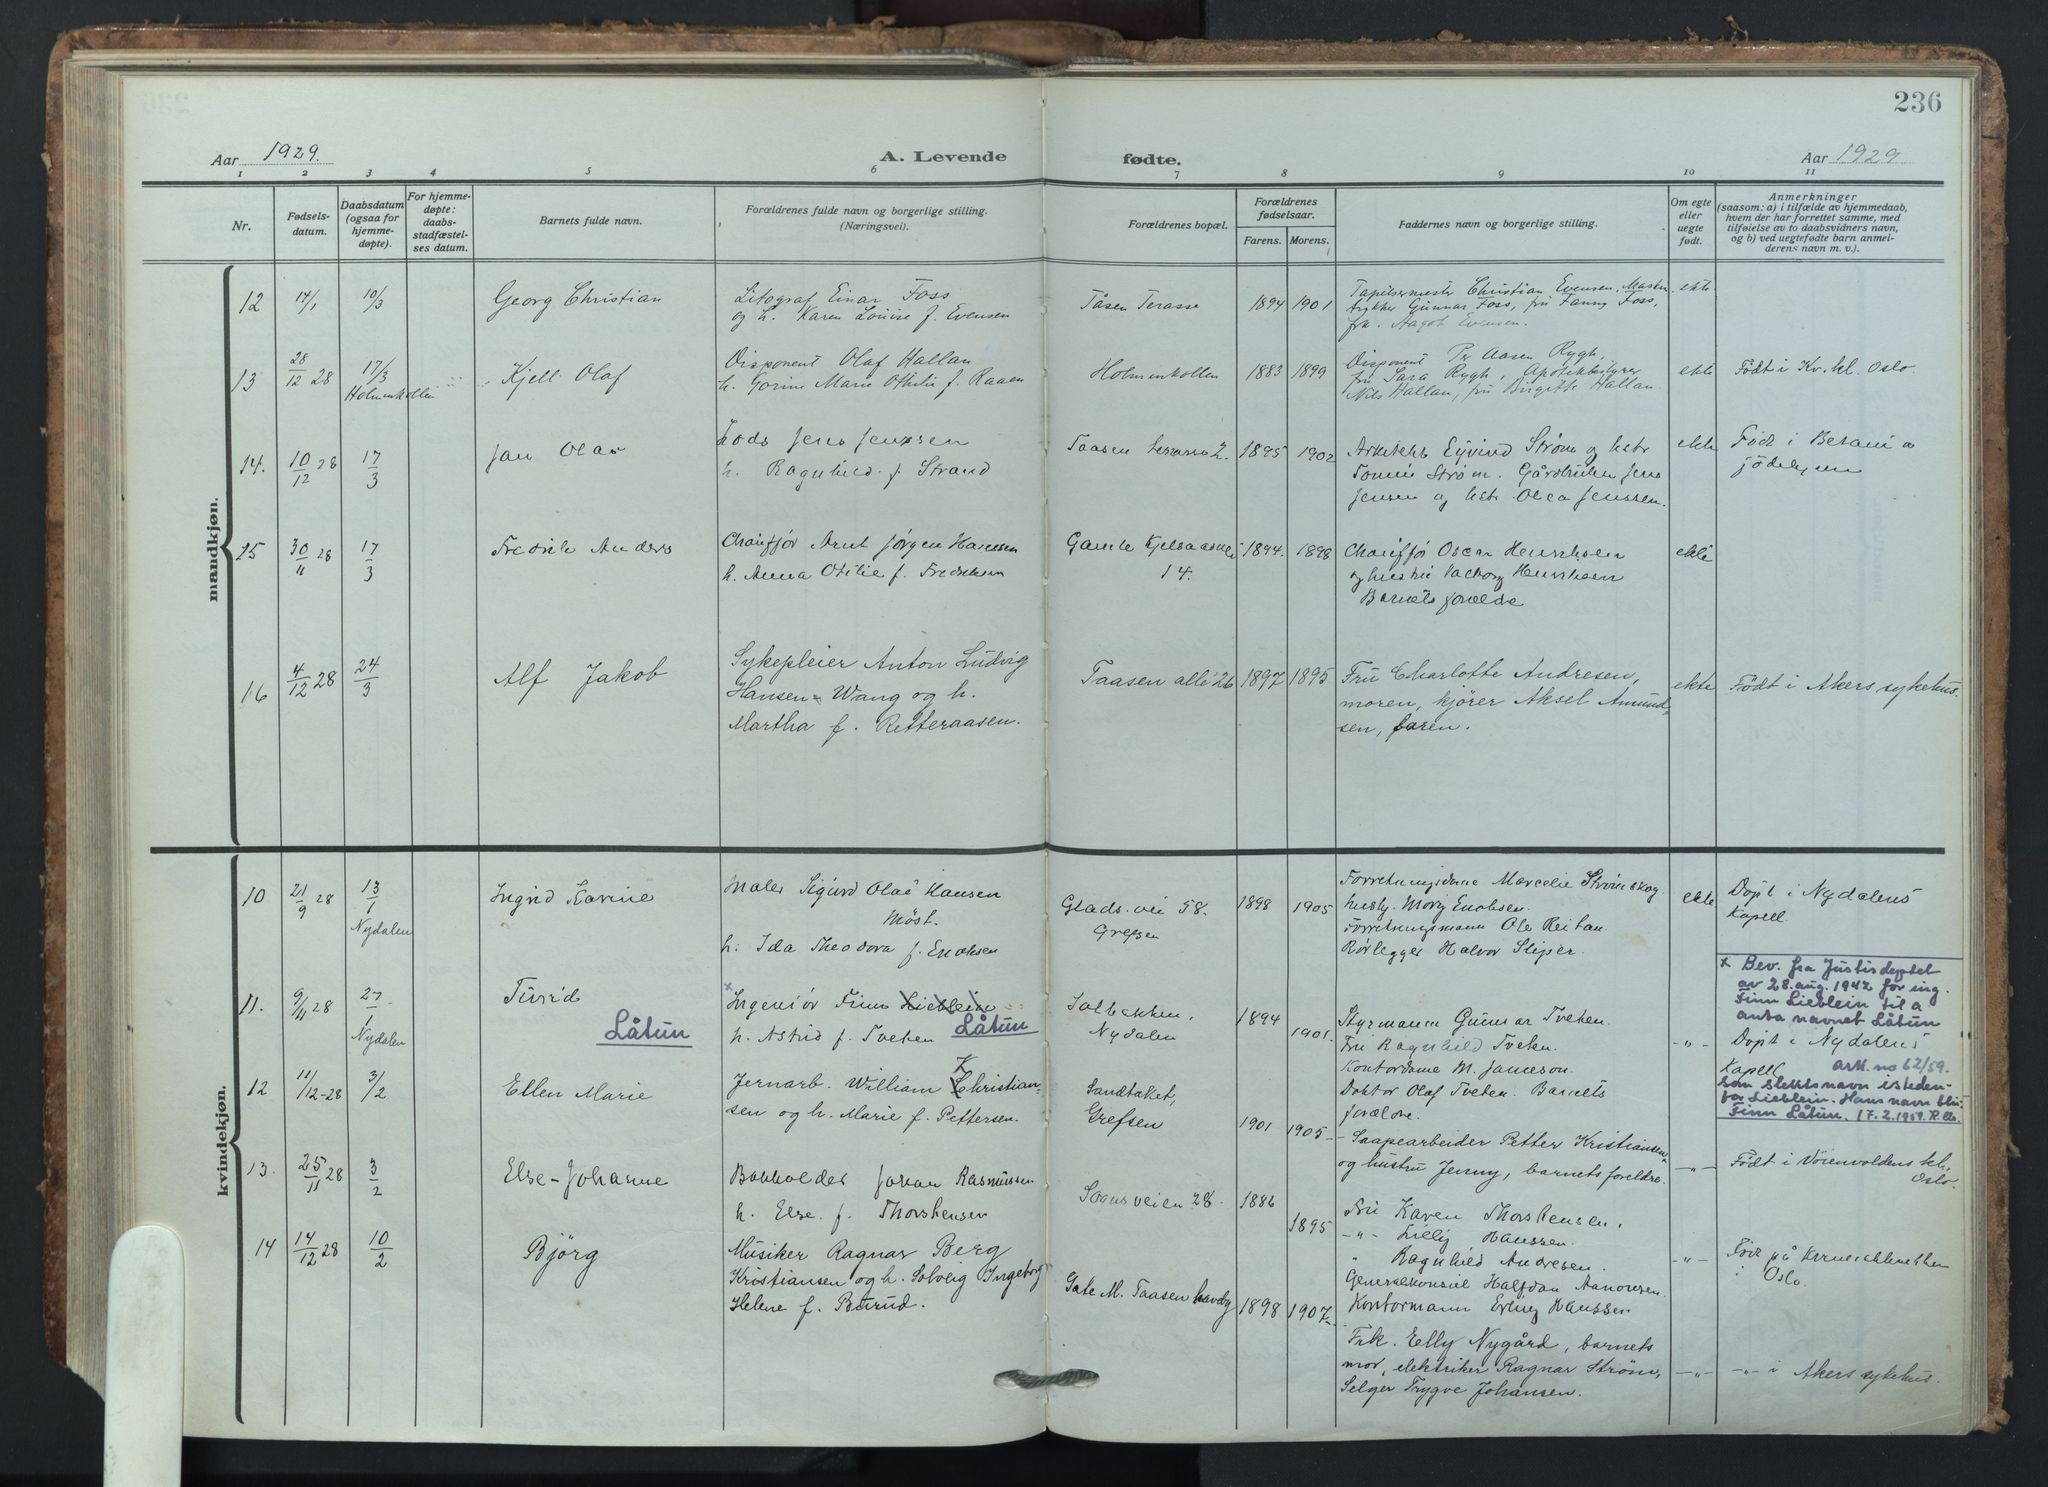 236
Aar 1929.
A. Levende
fødte.
Aar 1929
1 2 3 4 5 6 7 8 9 10 11
Nr.
Fødselsdatum.
Daabsdatum (ogsaa for hjemmedøpte).
For hjemmedøpte: daabs stadfæstelses datum.
Barnets fulde navn.
Forældrenes fulde navn og borgerlige stilling. (Næringsvei).
Forældrenes bopæl.
Forældrenes fødselsaar.
Farens. Morens.
Faddernes navn og borgerlige stilling.
Om egte eller uegte født.
Anmerkninger (saasom: a) i tilfælde av hjemmedaab, hvem der har forrettet samme, med tilføielse av to daabsvidners navn, og b) ved uegtefødte barn anmelderens navn m. v.).
mandkjøn.
12 14/1 10/3 Georg Christian
Litograf Einar Foss
og h. Karen Louise f. Evensen
Tåsen Terasse 1894 1901
Tapetsermester Christian Evensen,
Gunnar Foss, fru Fanny Foss,
frk. Aagot Evensen.
ekte
13 28/12 28 17/3 Holmenkollen Kjell Olaf
Disponent Olaf Hallan
h. Gorine Marie Othilie f. Raaen
Holmenkollen 1883 1899
Disponent Per Aasen Rygh,
fru Sara Rygh, Apotekbestyrer
Nils Hallan, fru Birgithe Hallan.
ekte Født i Kv. kl. Oslo.
14. 10/12 28 17/3 Jan Olav
Lods Jens Jenssen
h. Ragnhild f. Strand
Taasen terasse 2. 1895 1902
Arkitekt Eyvind Strøm og hstr
Tommie Strøm. Gårdbruker Jens
Jensen og hstr. Olea Jenssen.
ekte Født i Betani
15 30/11 28 17/3 Fredrik Anders
Chauffør Arnt Jørgen Hansen
h. Anna Otilie f. Fredriksen
Gamle Kjelsaasvei
14. 1894. 1898
Chauffø Oscar Henriksen
og hustru Valborg Henriksen
Barnets forælde
ekte
16 4/12 28 24/3 Alf Jakob
Sykepleier Anton Ludvig
Hansen-Wang og h.
Martha f. Retteraasen.
Taasen allé 26 1897 1895
Fru Charlotte Andresen,
moren, kjører Aksel Amund-
sen, faren.
ekte Født i Akers sykehus.
kvindekjøn.
10 21/9 28 13/1 Nydalen Ingrid Karine
Maler Sigurd Olaf Hansen
Møst.
h. Ida Theodora f. Enoksen
Glads. vei 58.
Grefsen 1898 1905
Forretningsdame Marcelie Strømskag
husly. Mary Enoksen.
Forretningsmann Ole Reitan.
Rørlegger Halvor Sliper.
ekte Døpt i Nydalens
Kapell.
11. 9/11 28 27/1 Nydalen Turid
Låtun
x Ingeniør Finn Lieblein
h. Astrid f. Tveten Låtun
Solbakken,
Nydalen 1894 1901.
Styrmann Gunnar Tveten.
Fru Ragnhild Tveten.
Kontordame M. Jameson.
Doktor Olaf Tveten. Barnets
forældre.
-„- x Bev. fra Justisdeptet
av 28. aug. 1942 for ing.
Finn Lieblein til a
anta navnet Låtun
Døpt i Nydalens
Kapell ark. no 62/59.
som slektsnavn isteden-
for Lieblein. Hans navn blir
Finn Låtun. 17.2.1959.
12 11/12-28 3/2 Ellen Marie
Jernarb. William K Christian-
sen og h. Marie f. Pettersen.
Sandtaket,
Grefsen 1901 1905-
Saapearbeider Petter Kristiansen
og hustru Jenny, barnets foreldre.
-„- Født i Vøienvoldens kl.,
Oslo.
13. 25/11 28 3/2 Else-Johanne
Bokholder Johan Rasmussen
h. Else f. Thorstensen
Sognsveien 28. 1886 1895
Fru Karen Thorstensen.
-„- Lilly Hanssen.
„ Ragnhild Andresen.
Generalkonsul Halfdan Aanonsen.
Kontormann Erling Hanssen
-„- Født på
i Oslo.
14 14/12 28 10/2 Bjørg
Musiker Ragnar Berg
Kristiansen og h. Solveig Ingeborg
Helene f. Burud.
Gate M. Taasen haveby 1898 1907-
Frk. Elly Nygård, barnets
mor, elektriker Ragnar Strøm,
Selger Trygve Johansen.
-„- -„- i Akers sykehus.